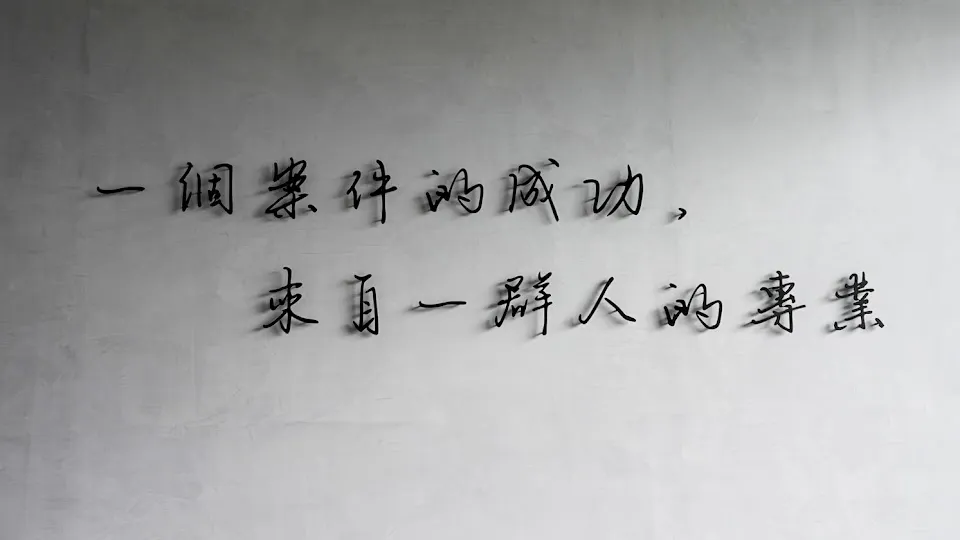 一個案件的成功，
來自一群人的專業